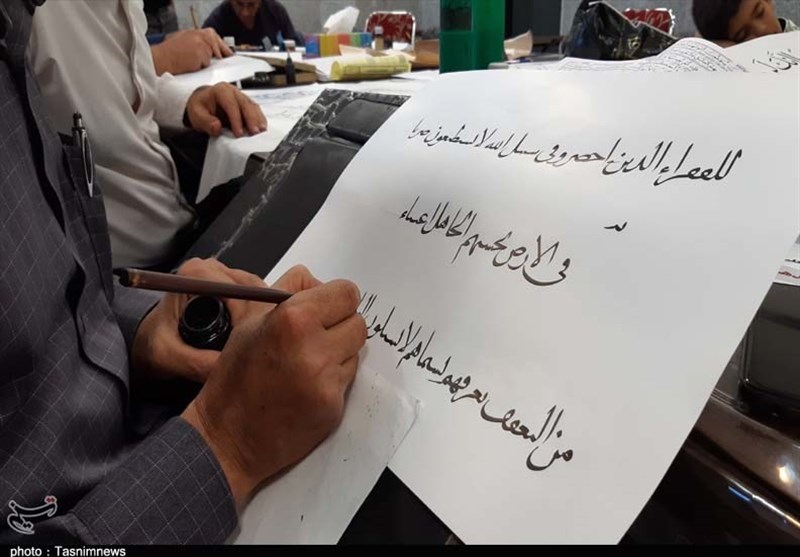 للفقراء الذین احصروا فی سبیل الله لا یستطیعون ضربا
فی الارض یحسبهم الجاهل اغنیاء
من التعفف تعرفهم بسیماهم لا یسئلون
photo : Tasnimnews